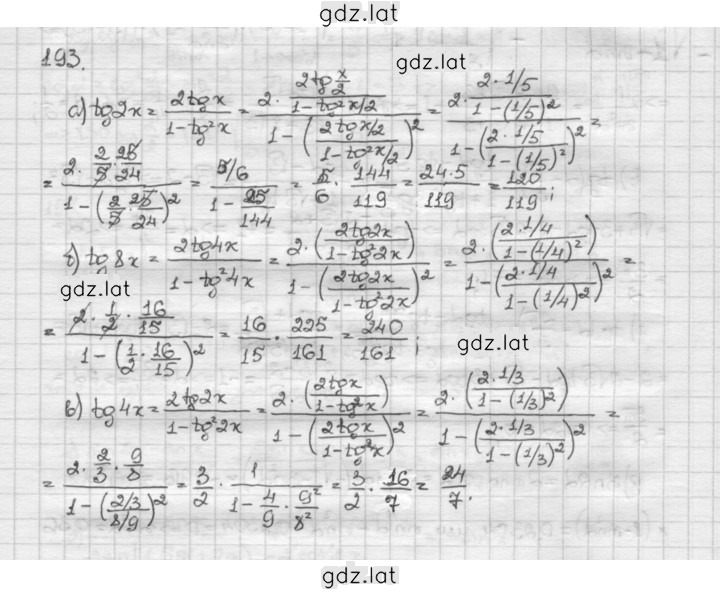 gdz.lat
193.
gdz.lat
а) tg2x = \frac{2tgx}{1-tg²x} = \frac{2·\frac{2tg\frac{x}{2}}{1-tg²x/2}}{1-(\frac{2tgx/2}{1-tg²x/2})²} = \frac{2·\frac{2·1/5}{1-(1/5)²}}{1-(\frac{2·1/5}{1-(1/5)²})²} =
= \frac{2·\frac{2}{5}·\frac{25}{24}}{1-(\frac{2}{5}·\frac{25}{24})²} = \frac{5/6}{1-\frac{25}{144}} = \frac{5}{6}·\frac{144}{119} = \frac{24·5}{119} = \frac{120}{119};
б) tg8x = \frac{2tg4x}{1-tg²4x} = \frac{2·(\frac{2tg2x}{1-tg²2x})}{1-(\frac{2tg2x}{1-tg²2x})²} = \frac{2·(\frac{2·1/4}{1-(1/4)²})}{1-(\frac{2·1/4}{1-(1/4)²})²} =
gdz.lat
= \frac{2·\frac{1}{2}·\frac{16}{15}}{1-(\frac{1}{2}·\frac{16}{15})²} = \frac{16}{15}·\frac{225}{161} = \frac{240}{161};
gdz.lat
в) tg4x = \frac{2tg2x}{1-tg²2x} = \frac{2·(\frac{2tgx}{1-tg²x})}{1-(\frac{2tgx}{1-tg²x})²} = \frac{2·(\frac{2·1/3}{1-(1/3)²})}{1-(\frac{2·1/3}{1-(1/3)²})²} =
= \frac{2·\frac{2}{3}·\frac{9}{8}}{1-(\frac{2/3}{8/9})²} = \frac{3}{2}·\frac{1}{1-\frac{4}{9}·\frac{9²}{8²}} = \frac{3}{2}·\frac{16}{7} = \frac{24}{7}.
gdz.lat